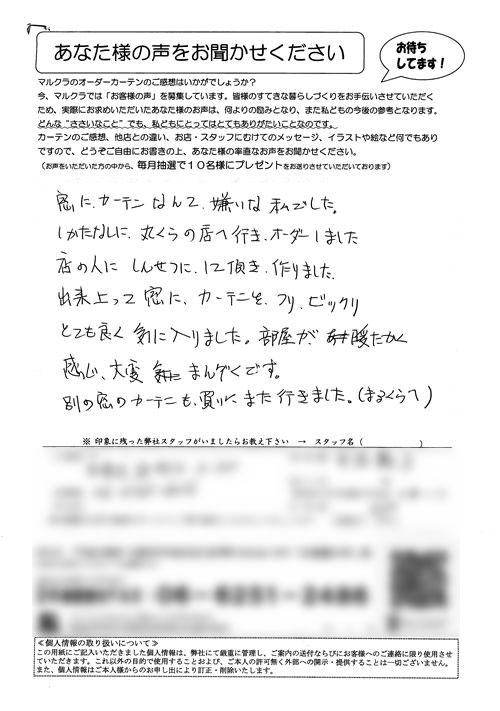 あなた様の声をお聞かせください
お待ち
してます！
マルクラのオーダーカーテンのご感想はいかがでしょうか？
今、マルクラでは「お客様の声」を募集しています。皆様のすてきな暮らしづくりをお手伝いさせていただく
ため、実際にお求めいただいたあなた様のお声は、何よりの励みとなり、また私どもの今後の参考となります。
どんな“ささいなこと”でも、私どもにとってはとてもありがたいことなのです。
カーテンのご感想、他店との違い、お店・スタッフにむけてのメッセージ、イラストや絵など何でもあり
ですので、どうぞご自由にお書きの上、あなた様の率直なお声をお聞かせください。
（お声をいただいた方の中から、毎月抽選で１０名様にプレゼントをお送りさせていただいております）
窓に、カーテン なんて、嫌いな 私でした。
しかたなしに、丸くらの店へ行き、オーダーしました
店の人に しんせつに、して頂き、作りました。
出来上って 窓に、カーテンを、フリ、ビックリ
とても良く 気に入りました。部屋が 暖たかく
感じ、大変 まんぞくです。
別の窓のカーテンも、買いに また 行きました。（まるくらへ）
※ 印象に残った弊社スタッフがいましたらお教え下さい → スタッフ名（ ）
06-6251-2486
＜個人情報の取り扱いについて＞
この用紙にご記入いただきました個人情報は、弊社にて厳重に管理し、ご案内の送付ならびにお客様へのご連絡に限り使用させ
ていただきます。これ以外の目的で使用することおよび、ご本人の許可無く外部への開示・提供することは一切ございません。
また、個人情報はご本人様からのお申し出により訂正・削除いたします。